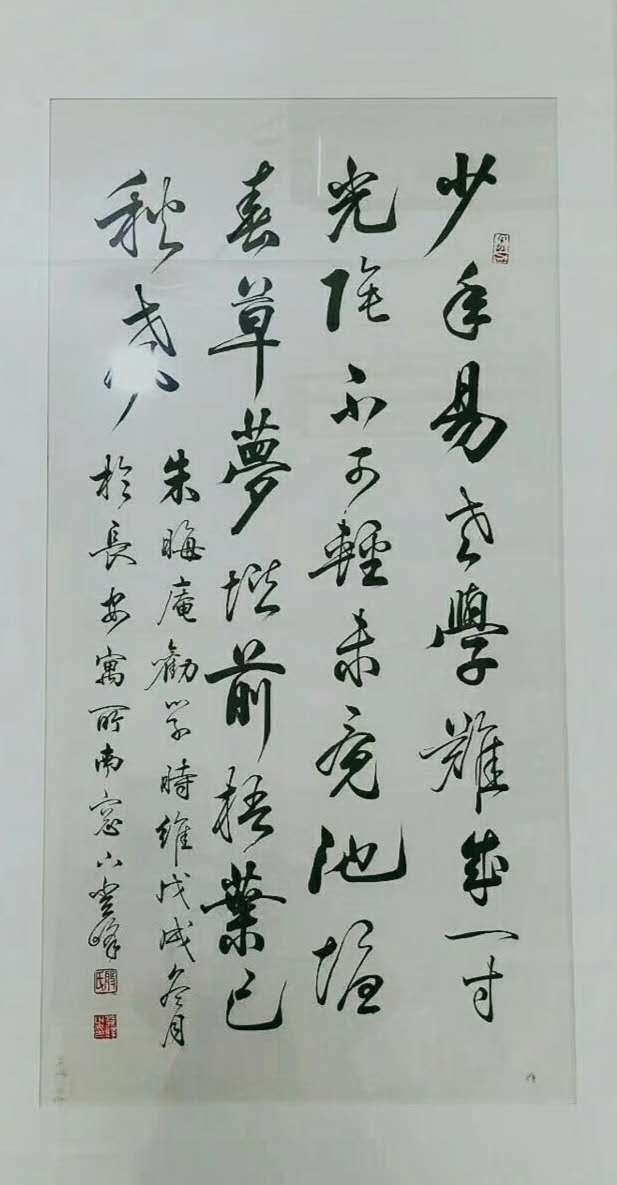 少年易老學難成一寸
光陰不可輕未覺池塘
春草夢堦前梧葉已
秋聲
朱晦庵勸學時維戊戌冬月
於長安寓所南窓下登峰